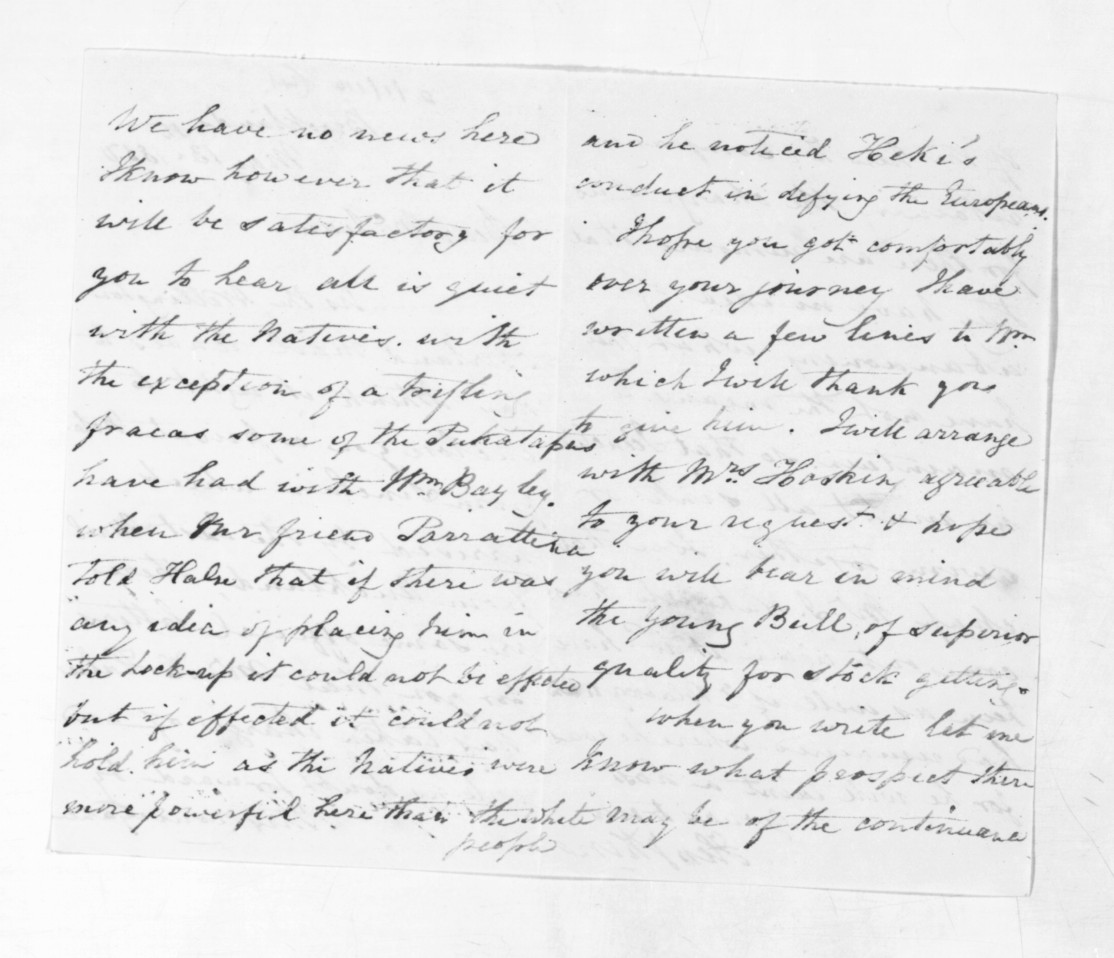 We have no news here
I know however that it
will be satisfactory for
you to hear all is quiet
with the Natives. with
the exception of a trifling
fracas some of the Puketapus
have had with Wm Bayley.
when our friend Parrattena
told Halse that if there was
any idea of placing him in
the Lock-up it could not be effected
but if effected it could not
hold him as the Natives were
more powerful here than the white
people
and he noticed Heki's
conduct in defying the Europeans.
I hope you got comfortably
over your journey I have
written a few lines to Wm
which I will thank you
to give him. I will arrange
with Mrs. Hoskin agreeable
to your request & hope
you will bear in mind
the young Bull, of superior
quality for stock getting.
when you write let me
know what prospect there
may be of the continuance